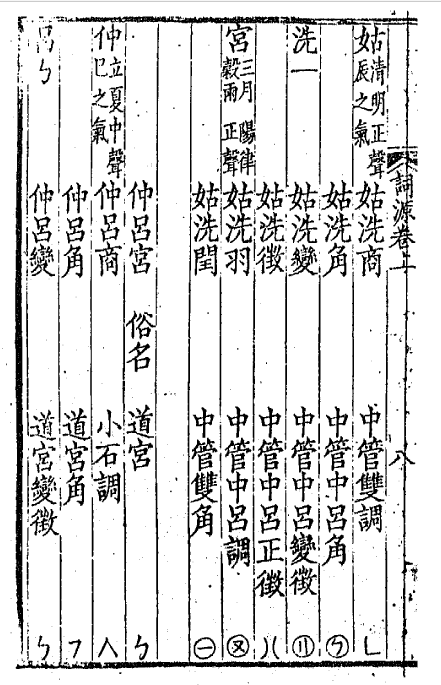 詞源卷上 八
姑 清明正聲 辰之氣 姑洗商 中管雙調 ㄴ
姑洗角 中管中呂角 ㄣ
洗 一 姑洗變 中管中呂變徵 〣
姑洗徵 中管中呂正徵 八
宮 三月陽律 穀雨正聲 姑洗羽 中管中呂調 ㊇
姑洗閏 中管雙角 ㊀
仲呂宮 俗名 道宮 ㄣ
仲 立夏中聲 巳之氣 仲呂商 小石調 人
仲呂角 道宮角 フ
呂 ㄣ 仲呂變 道宮變徵 ㄣ